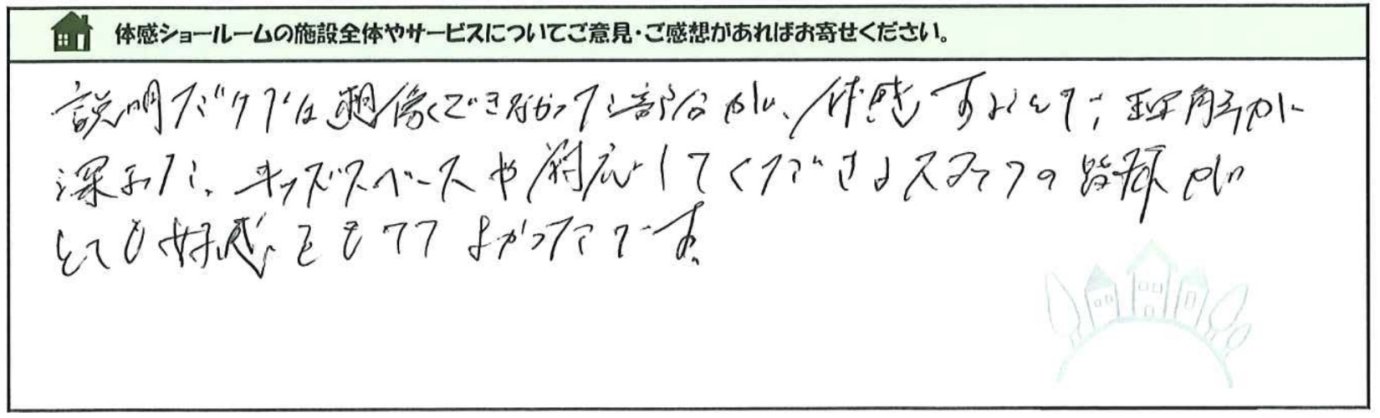 体感ショールームの施設全体やサービスについてご意見・ご感想があればお寄せください。
説明だけでは想像できなかった部分が、体感することで、理解が
深まった。キッズスペースや対応してくださるスタッフの皆様が
とても好感をもててよかったです。